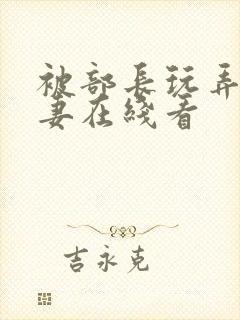 被部长玩弄
妻在线看
吉永克